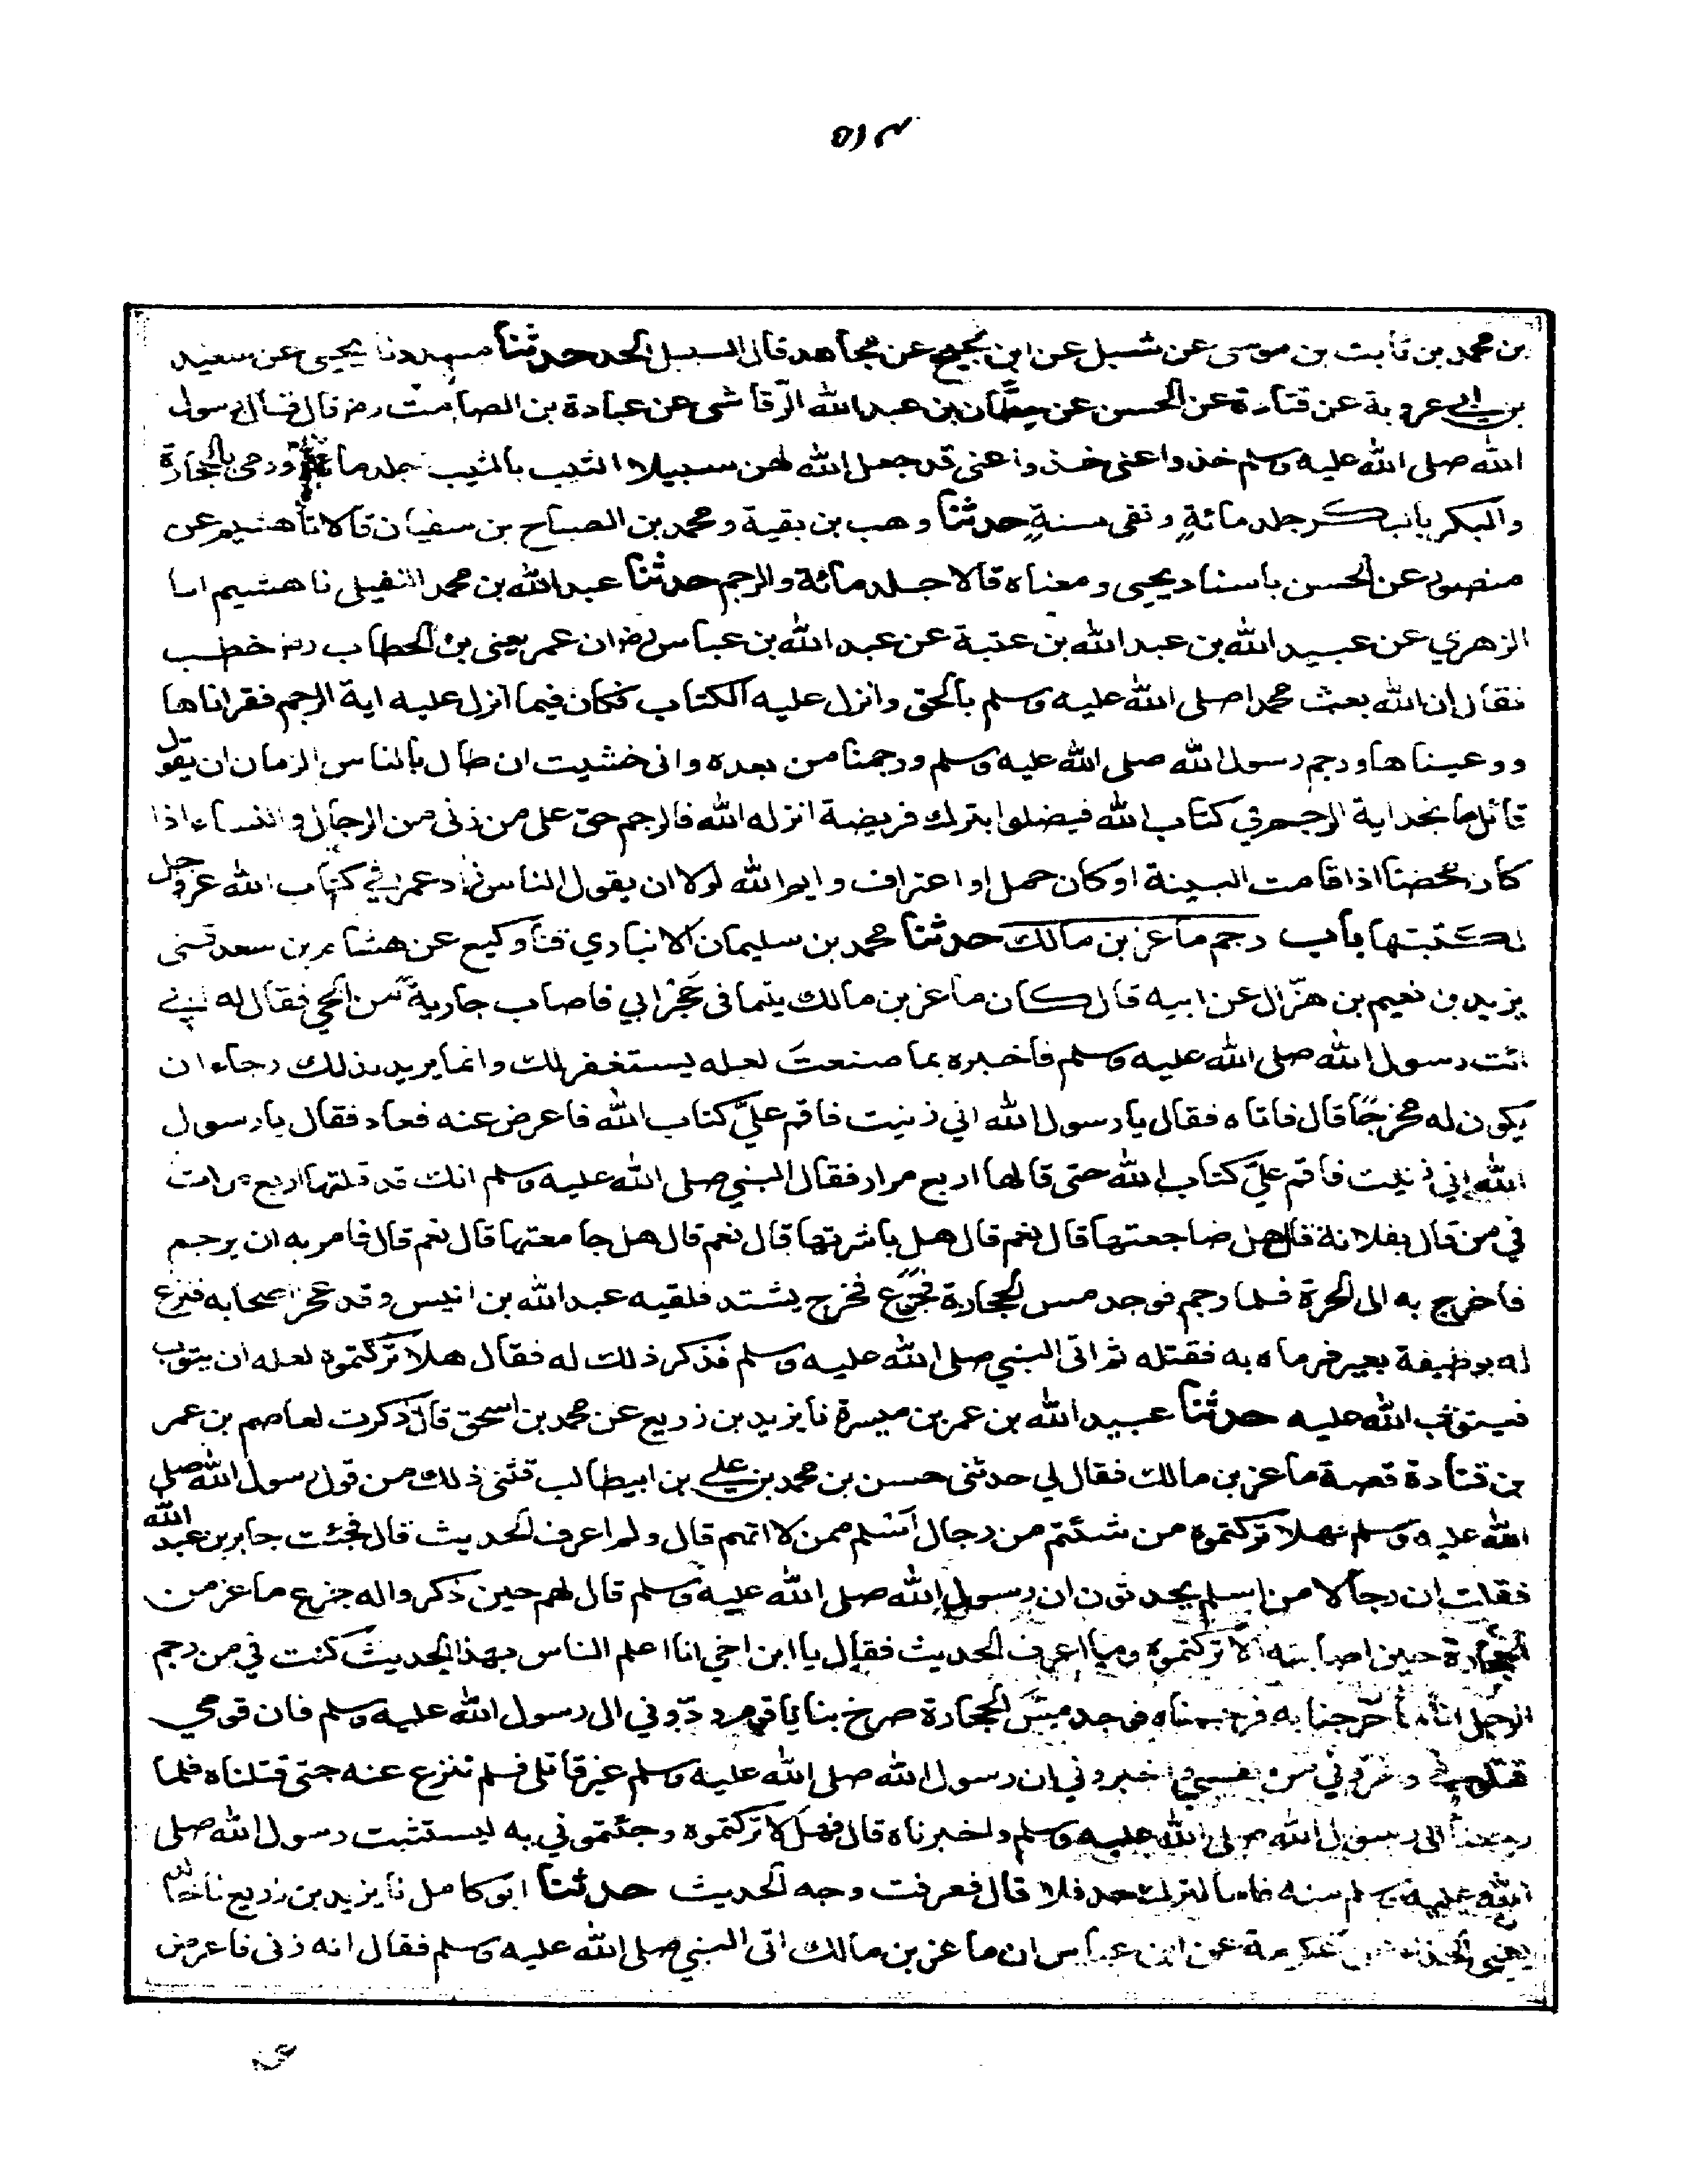 ٥١٣
بن محمد بن ثابت بن موسى عن شبل عن ابن نجيح عن مجاهد قال السبيل الحد حدثنا مسدد نا يحيى عن سعيد
بن ابي عروبة عن قتادة عن الحسن عن حطّان بن عبد الله الرّقاشى عن عبادة بن الصامت رض قال قال رسول
الله صلى الله عليه وسلم خذوا عنى خذوا عنى قد جعل الله لهن سبيلا الثيب بالثيب جلد مائة ورمى بالحجارة
والبكر بالبكر جلد مائةٍ ونفى سنةٍ حدثنا وهب بن بقية ومحمد بن الصباح بن سفيان قالا نا هشيم عن
منصور عن الحسن باسناد يحيى ومعناه قالا جلد مائة والرجم حدثنا عبد الله بن محمد النفيلى نا هشيم انا
الزهري عن عبيد الله بن عبد الله بن عتبة عن عبد الله بن عباس رض ان عمر يعنى بن الخطاب رض خطب
فقال ان الله بعث محمدا صلى الله عليه وسلم بالحق وانزل عليه الكتاب فكان فيما انزل عليه اية الرجم فقراناها
ووعيناها ورجم رسول الله صلى الله عليه وسلم ورجمنا من بعده وانى خشيت ان طال بالناس الزمان ان يقول
قائل ما نجد اية الرجم في كتاب الله فيضلوا بترك فريضة انزله الله فالرجم حق على من زنى من الرجال والنساء اذا
كان محصنا اذا قامت البينة او كان حمل او اعتراف وايم الله لولا ان يقول الناس زاد عمر في كتاب الله عز وجل
لكتبتها باب رجم ماعز بن مالك حدثنا محمد بن سليمان الانباري ثنا وكيع عن هشام بن سعد ثنى
يزيد بن نعيم بن هزّال عن ابيه قال كان ماعز بن مالك يتما فى حَجْر ابي فاصاب جارية من الحي فقال له ابي
ائت رسول الله صلى الله عليه وسلم فاخبره بما صنعتَ لعله يستغفر لك وانما يريد بذلك رجاء ان
يكون له مخرجًا قال فاتاه فقال يا رسول الله اني زنيت فاقم عليَّ كتاب الله فاعرض عنه فعاد فقال يا رسول
الله اني زنيت فاقم عليَّ كتاب الله حتى قالها اربع مرار فقال النبي صلى الله عليه وسلم انك قد قلتها اربع مرات
في من قال بفلانة قال هل ضاجعتها قال نعم قال هل باشرتها قال نعم قال هل جامعتها قال نعم قال فامر به ان يرجم
فاخرج به الى الحرة فلما رجم فوجد مس الحجارة فجزع فخرج يشتد فلقيه عبد الله بن انيس وقد عجز اصحابه فنزع
له بوظيفة بعير فرماه به فقتله ثم اتى النبي صلى الله عليه وسلم فذكر ذلك له فقال هلا تركتموه لعله ان يتوب
فيتوب الله عليه حدثنا عبيد الله بن عمر بن ميسرة نا يزيد بن زريع عن محمد بن اسحق قال ذكرت لعاصم بن عمر
بن قتادة قصة ماعز بن مالك فقال لي حدثنى حسن بن محمد بن علي بن ابيطالب ثنى ذلك من قول رسول الله صلى
الله عليه وسلم فهلا تركتموه من شئتم من رجال اسلم ممن لا اتهم قال ولم اعرف الحديث قال فجئت جابر بن عبد الله
فقلت ان رجالا من اسلم يحدثون ان رسول الله صلى الله عليه وسلم قال لهم حين ذكروا له جزع ماعز من
الحجارة حين اصابته الا تركتموه وما اعرف الحديث فقال يا ابن اخي انا اعلم الناس بهذا الحديث كنت في من رجم
الرجل انا لما خرجنا به فرجمناه فوجد مسّ الحجارة صرخ بنا يا قوم ردّوني الى رسول الله عليه وسلم فان قومي
قتلوني وغرّوني من نفسي واخبروني ان رسول الله صلى الله عليه وسلم غير قاتلى فلم ننزع عنه حتى قتلناه فلما
رجعنا الى رسول الله صلى الله عليه وسلم واخبرناه قال فهلا تركتموه وجئتموني به ليستثبت رسول الله صلى
الله عليه وسلم منه فاما لترك حد فلا قال فعرفت وجه الحديث حدثنا ابو كامل نا يزيد بن زريع نا خالد
يعني الحذاء عن عكرمة عن ابن عباس ان ماعز بن مالك اتى النبي صلى الله عليه وسلم فقال انه زنى فاعرض